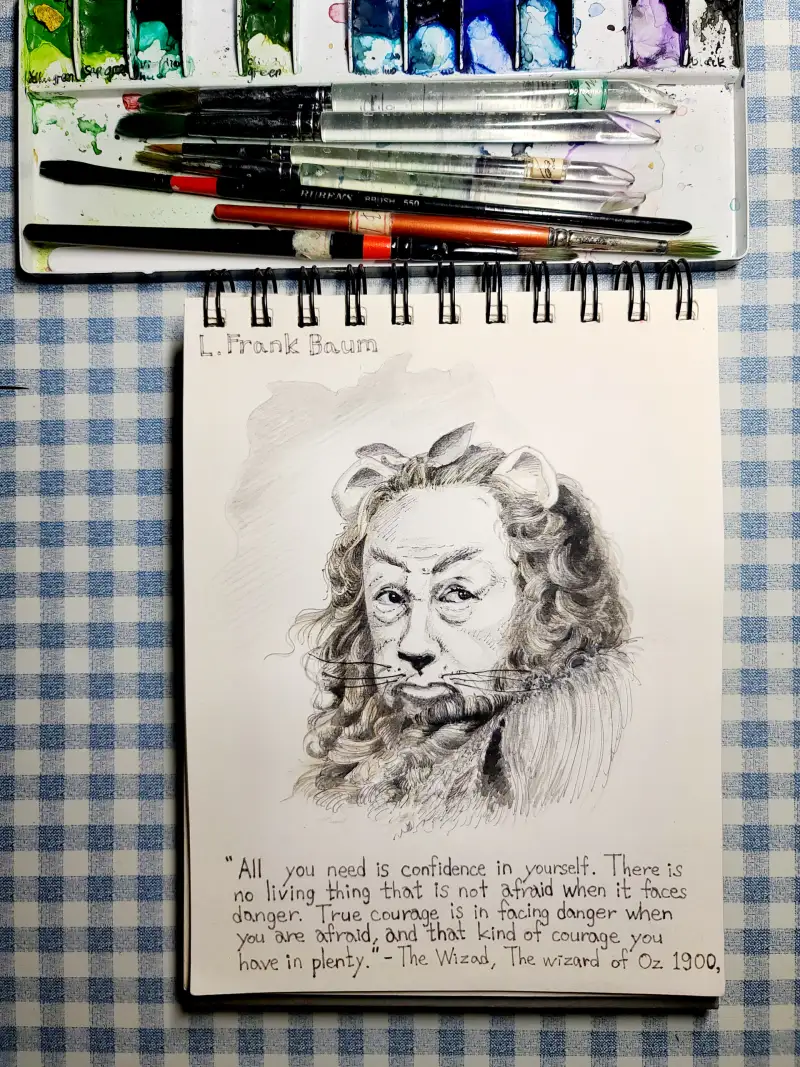 green
black
RUBENS BRUSH 550
L. Frank Baum
"All you need is confidence in yourself. There is
no living thing that is not afraid when it faces
danger. True courage is in facing danger when
you are afraid, and that kind of courage you
have in plenty." - The Wizad, The wizard of Oz 1900,